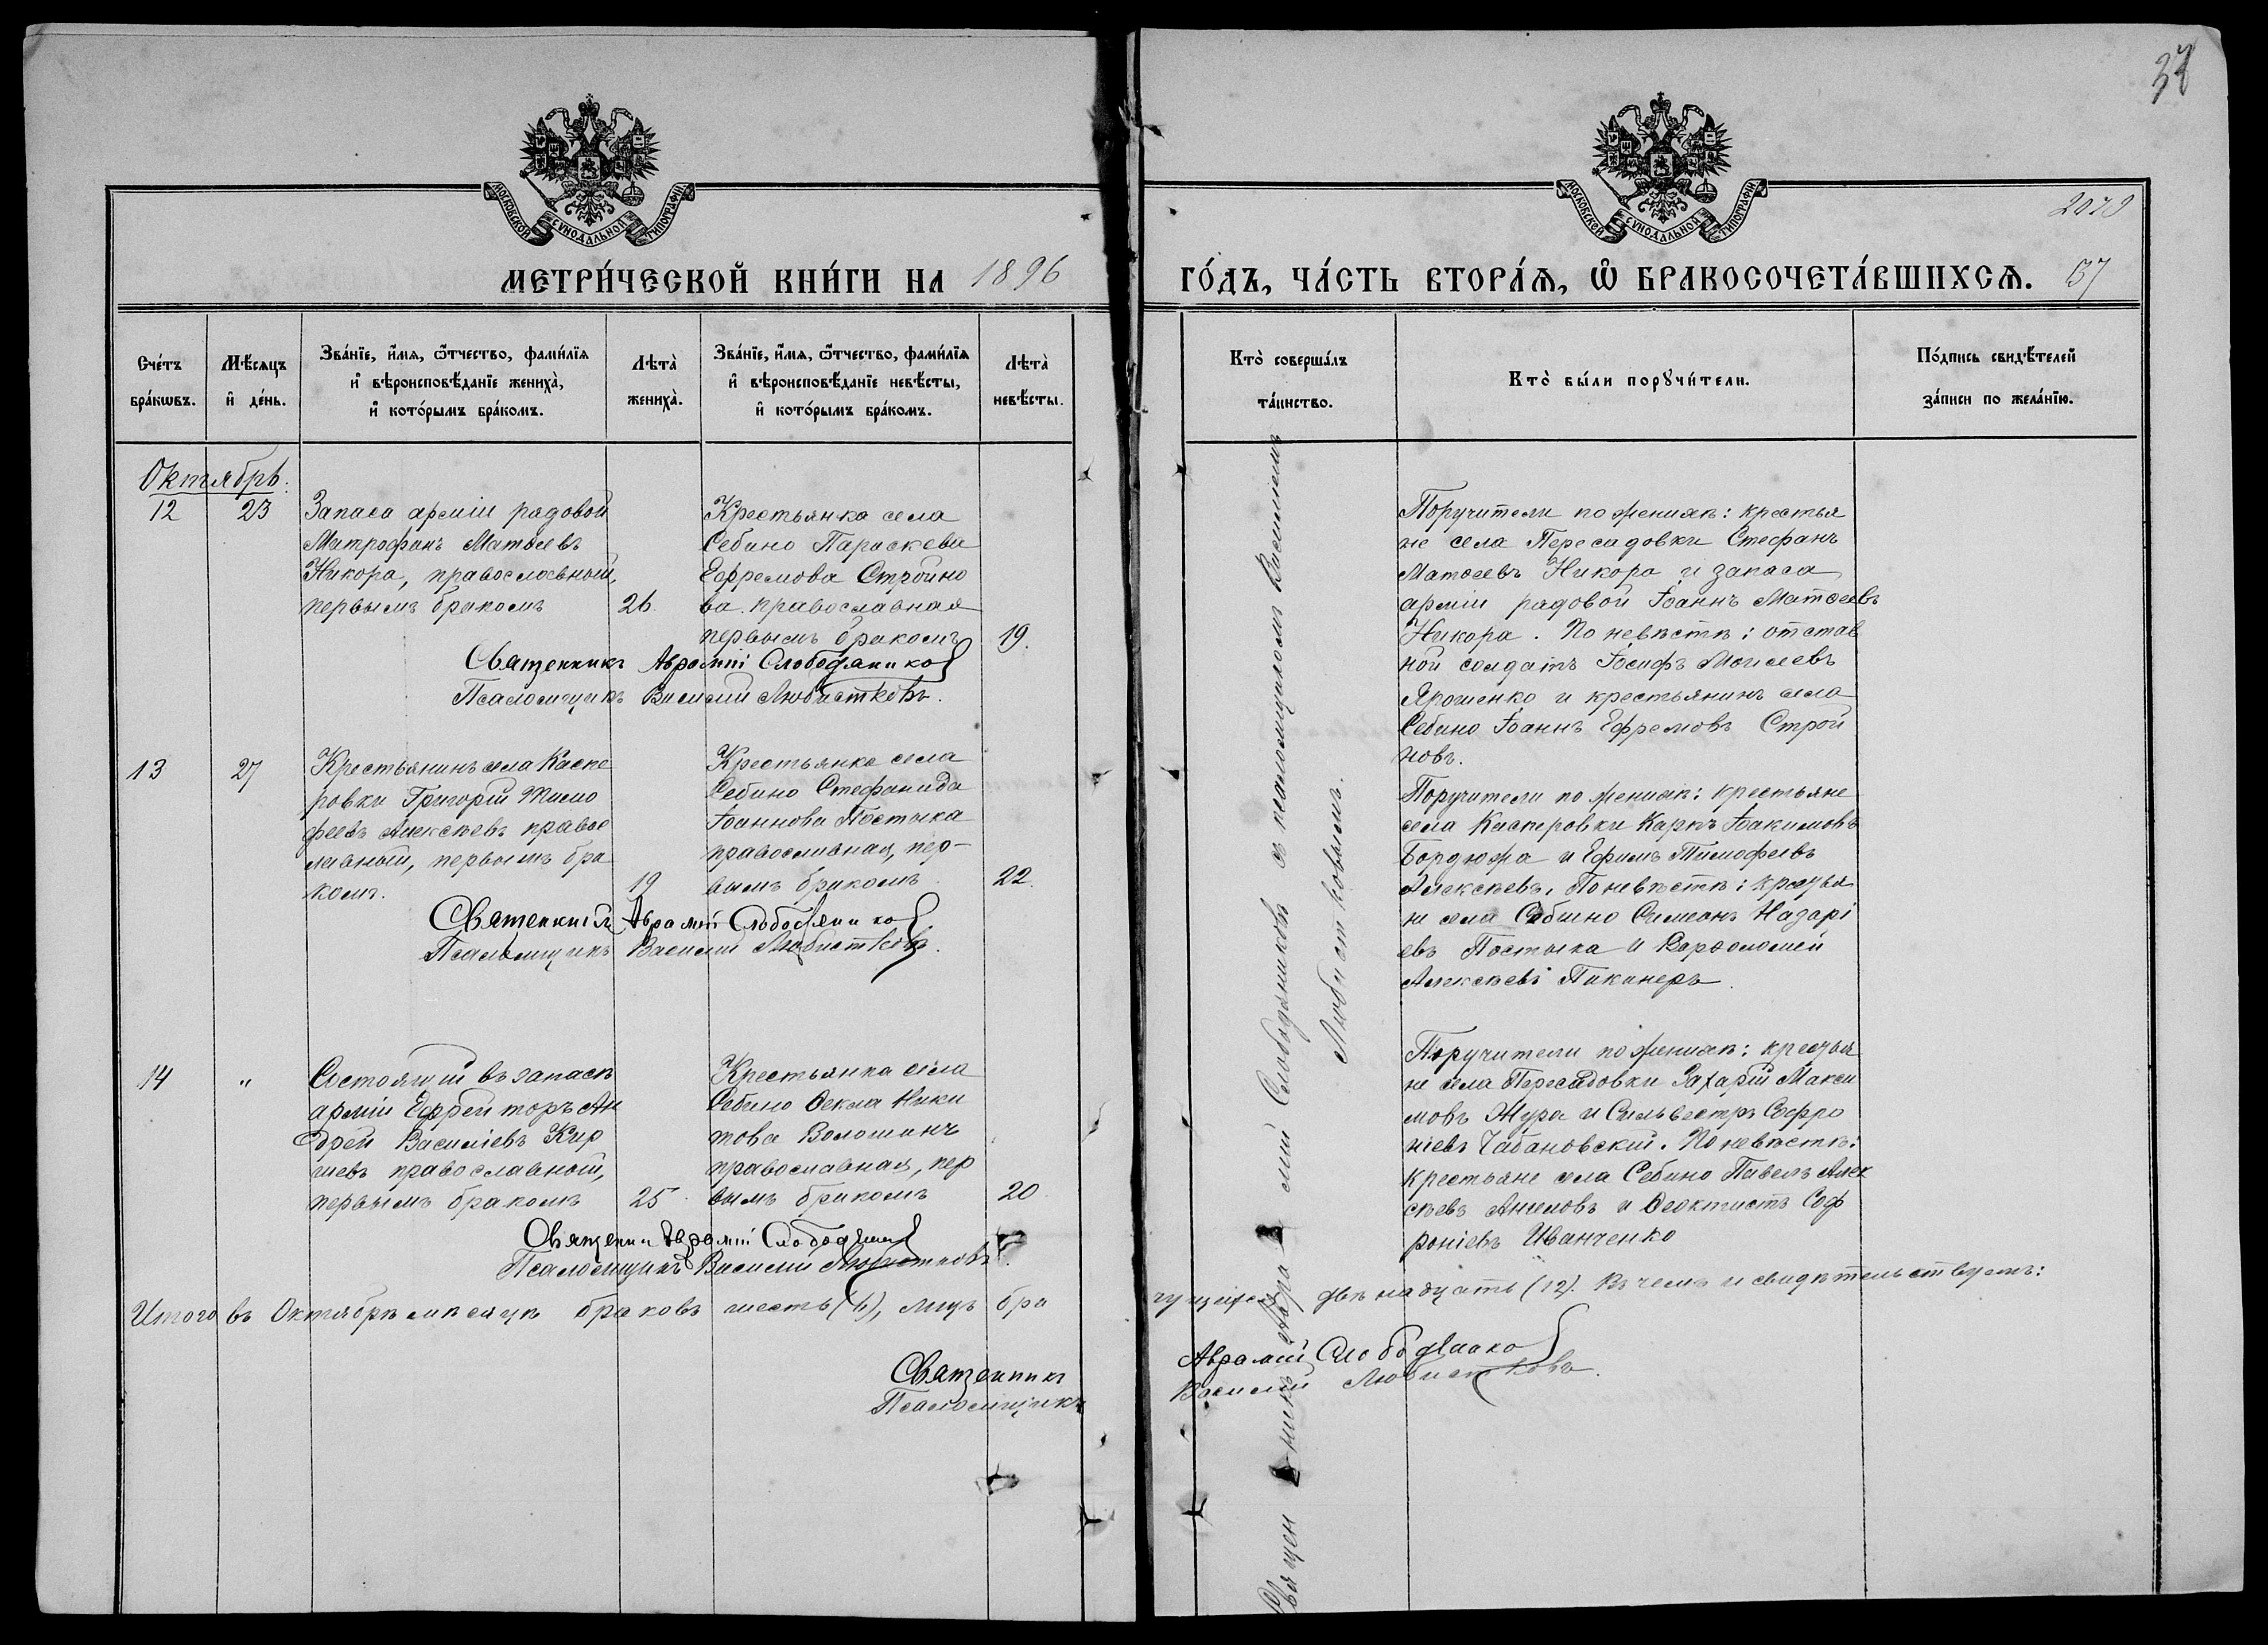 37
МОСКОВСКОЙ СѴНОДАЛЬНОЙ ТИПОГРАФІИ
МОСКОВСКОЙ СѴНОДАЛЬНОЙ ТИПОГРАФІИ
МЕТРИ́ЧЕСКОЙ КНИ́ГИ НА 1896
ГО́ДЪ, ЧА́СТЬ ВТОРА́Ѧ, Ѽ БРАКОСОЧЕТА́ВШИХСѦ. 137
Сче́тъ бра́кѡвъ.
Мѣ́сяцъ и҆ де́нь.
Зва́нїе, и҆́мя, ѻ҆́тчество, фами́лїя и҆ вѣроисповѣ́данїе жениха̀, и҆ кото́рымъ бра́комъ.
Лѣта̀ жениха̀.
Зва́нїе, и҆́мя, ѻ҆́тчество, фами́лїя и҆ вѣроисповѣ́данїе невѣ́сты, и҆ кото́рымъ бра́комъ.
Лѣта̀ невѣ́сты.
Кто̀ соверша́лъ та́инство.
Кто̀ бы́ли порꙋчи́тели.
По́дпись свидѣ́телей за́писи по жела́нїю.
Октябрь.
12
23
Запаса арміи рядовой
Митрофанъ Матвеевъ
Никора, православный,
первымъ бракомъ
26.
Крестьянка села
Себино Параскева
Ефремова Стройно
ва православная
первымъ бракомъ
19.
Священникъ Аврамій Слободяников
Псаломщикъ Василий Любистковъ.
Поручители по женихѣ: крестья
не села Пересадовки Стефанъ
Матвеевъ Никора и запаса
арміи рядовой Іоаннъ Матвеевъ
Никора. По невѣстѣ: отстав
ной солдатъ Іосифъ Моисеевъ
Ярошенко и крестьянинъ села
Себино Іоаннъ Ефремовъ Строй
новъ.
13
27
Крестьянинъ села Каспе
ровки Григорій Тимо
феевъ Алексѣевъ правос
лавный, первымъ бра
комъ.
19
Крестьянка села
Себино Стефанида
Іоаннова Постыка
православная, пер-
вымъ бракомъ
22.
Священникъ Аврамій Слободяников
Псаломщикъ Василий Любистковъ.
Поручители по женихѣ: крестьяне
села Касперовки Карпъ Іоакимовъ
Бордюжа и Ефимъ Тимофеевъ
Алексѣевъ. По невѣстѣ: крестья
не села Себино Симеонъ Назарі
евъ Постыка и Варфоломей
Алексѣевъ Пиканеръ.
14
"
Состоящій въ запасѣ
арміи Ефрейторъ Ан
дрей Василіевъ Кир
шевъ православный,
первымъ бракомъ
25.
Крестьянка села
Себино Ѳекла Ники
това Волошанъ
православная, пер
вымъ бракомъ
20
Священни Аврамій Слободяник
Псаломщикъ Василий Любистковъ.
Поручители по женихѣ: крестья
не села Пересадовки Захарій Макси
мовъ Жура и Сильвестръ Софро
ніевъ Чабановский. По невѣстѣ:
крестьяне села Себино Павелъ Алек
сѣевъ и Ѳеоктистъ Соф
роніевъ Иванченко
Священникъ Аврамій Слободяниковъ съ псаломщикомъ Василіемъ
Любистковымъ.
Итого въ Октябрѣ мѣсяцѣ браковъ шесть (6), лицъ бра
чущихся двѣнадцать (12). Въ чемъ и свидѣтельствуемъ:
Священникъ Аврамій Слободяико
Псаломщикъ Василий Любистковъ.